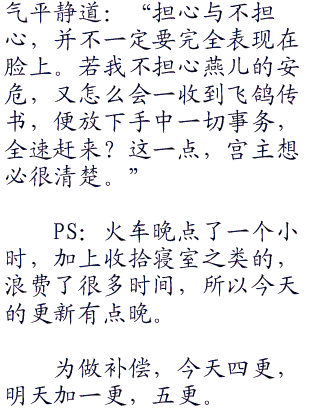 气平静道：“担心与不担
心，并不一定要完全表现在
脸上。若我不担心燕儿的安
危，又怎么会一收到飞鸽传
书，便放下手中一切事务，
全速赶来？这一点，宫主想
必很清楚。”
PS：火车晚点了一个小
时，加上收拾寝室之类的，
浪费了很多时间，所以今天
的更新有点晚。
为做补偿，今天四更，
明天加一更，五更。